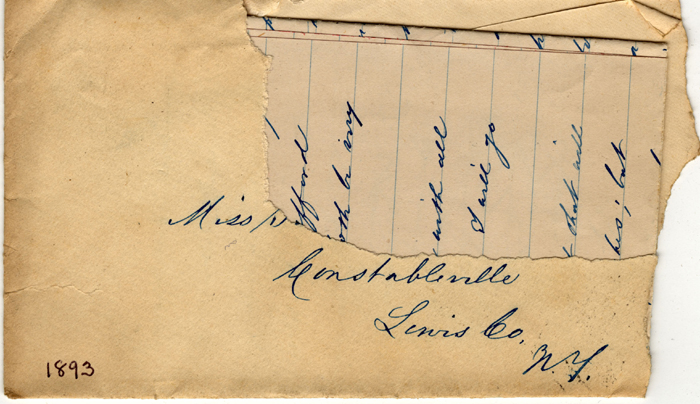 Miss
Constableville
Lewis Co.
N.Y.
1893
afford
with all
I will go
that will
but